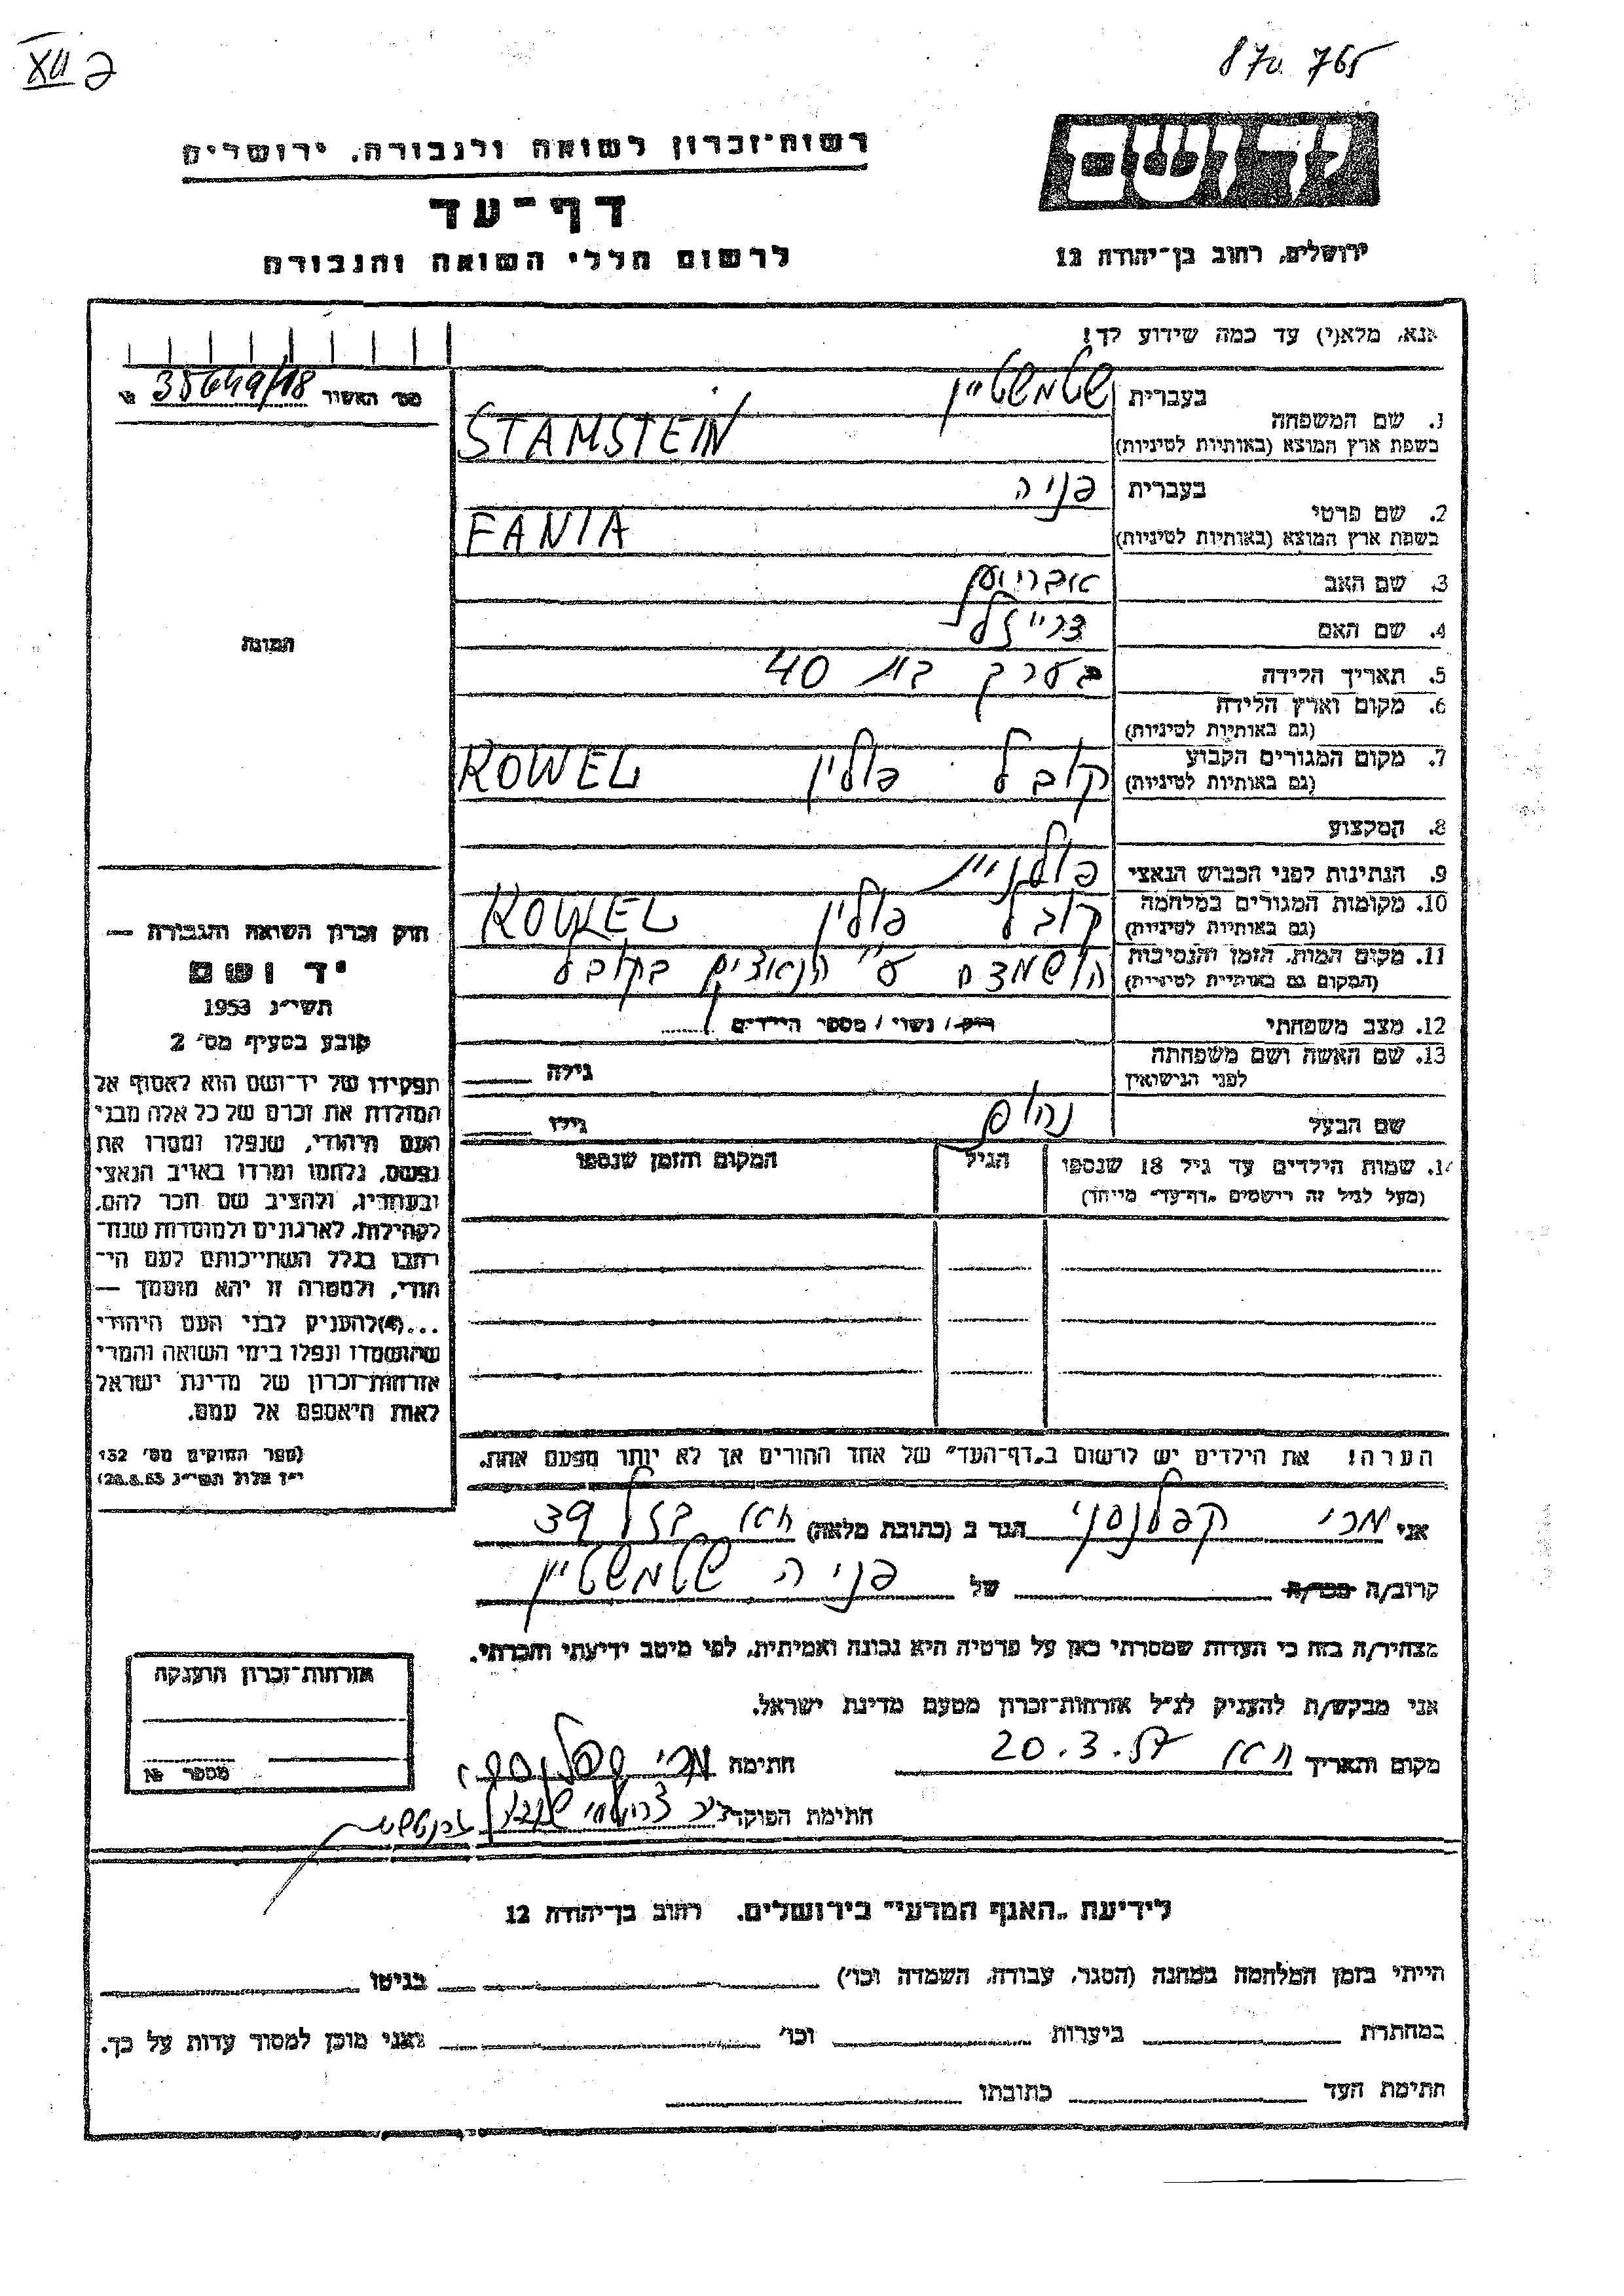 XII 2
870. 765
רשות־זכרון לשואה ולגבורה, ירושלים
דף־עד
לרשום חללי השואה והגבורה
יד ושם
ירושלים, רחוב בן־יהודה 12
אנא, מלא(י) עד כמה שידוע לך!
מס׳ האשור
1. שם המשפחה
בעברית שטמשטיין
בשפת ארץ המוצא (באותיות לטיניות) STAMSTEIN
2. שם פרטי
בעברית פניה
בשפת ארץ המוצא (באותיות לטיניות) FANIA
3. שם האב
4. שם האם
5. תאריך הלידה בערך בת 40
6. מקום וארץ הלידה
(גם באותיות לטיניות)
7. מקום המגורים הקבוע קובל פולין KOWEL
(גם באותיות לטיניות)
8. המקצוע
9. הנתינות לפני הכבוש הנאצי פולנית
10. מקומות המגורים במלחמה קובל פולין KOWEL
(גם באותיות לטיניות)
11. מקום המות, הזמן והנסיבות הושמדה ע״י הנאצים בקובל
(המקום גם באותיות לטיניות)
12. מצב משפחתי רוק / נשוי / מספר הילדים
13. שם האשה ושם משפחתה
לפני הנישואין
גילה
שם הבעל נחום גילו
14. שמות הילדים עד גיל 18 שנספו
(מעל לגיל זה רישמים „דף־עד״ מייחד)
הגיל
המקום והזמן שנספו
הערה! את הילדים יש לרשום ב„דף־העד״ של אחד ההורים אך לא יותר מפעם אחת.
התמונה
חוק זכרון השואה והגבורה —
יד ושם
תשי״ג 1953
קובע בסעיף מס׳ 2
תפקידו של יד־ושם הוא לאסוף אל
המולדת את זכרם של כל אלה מבני
העם היהודי, שנפלו ומסרו את
נפשם, נלחמו ומרדו באויב הנאצי
ובעוזריו, ולהציב שם וזכר להם,
לקהילות, לארגונים ולמוסדות שנח־
רבו בגלל השתייכותם לעם הי־
הודי, ולמטרה זו יהא מוסמך —
...(4) להעניק לבני העם היהודי
שהושמדו ונפלו בימי השואה והמרי
אזרחות־זכרון של מדינת ישראל
לאות היאספם אל עמם.
(ספר החוקים מס׳ 132
י״ז אלול תשי״ג 28.8.53)
אני מרי קפלנסקי הגר ב (כתובת מלאה) 39
קרוב/ה מכר/ה של פניה שטמשטיין
מצהיר/ה בזה כי העדות שמסרתי כאן על פרטיה היא נכונה ואמיתית, לפי מיטב ידיעתי והכרתי.
אני מבקש/ת להעניק לנ״ל אזרחות־זכרון מטעם מדינת ישראל.
מקום ותאריך 20.3.57 חתימה מרי קפלנסקי
חתימת הפוקד
אזרחות־זכרון הוענקה
מספר №
לידיעת „האגף המדעי״ בירושלים, רחוב בן־יהודה 12
הייתי בזמן המלחמה במחנה (הסגר, עבודה, השמדה וכו׳) בגיטו
במחתרת ביערות וכו׳ ואני מוכן למסור עדות על כך.
חתימת העד כתובתו